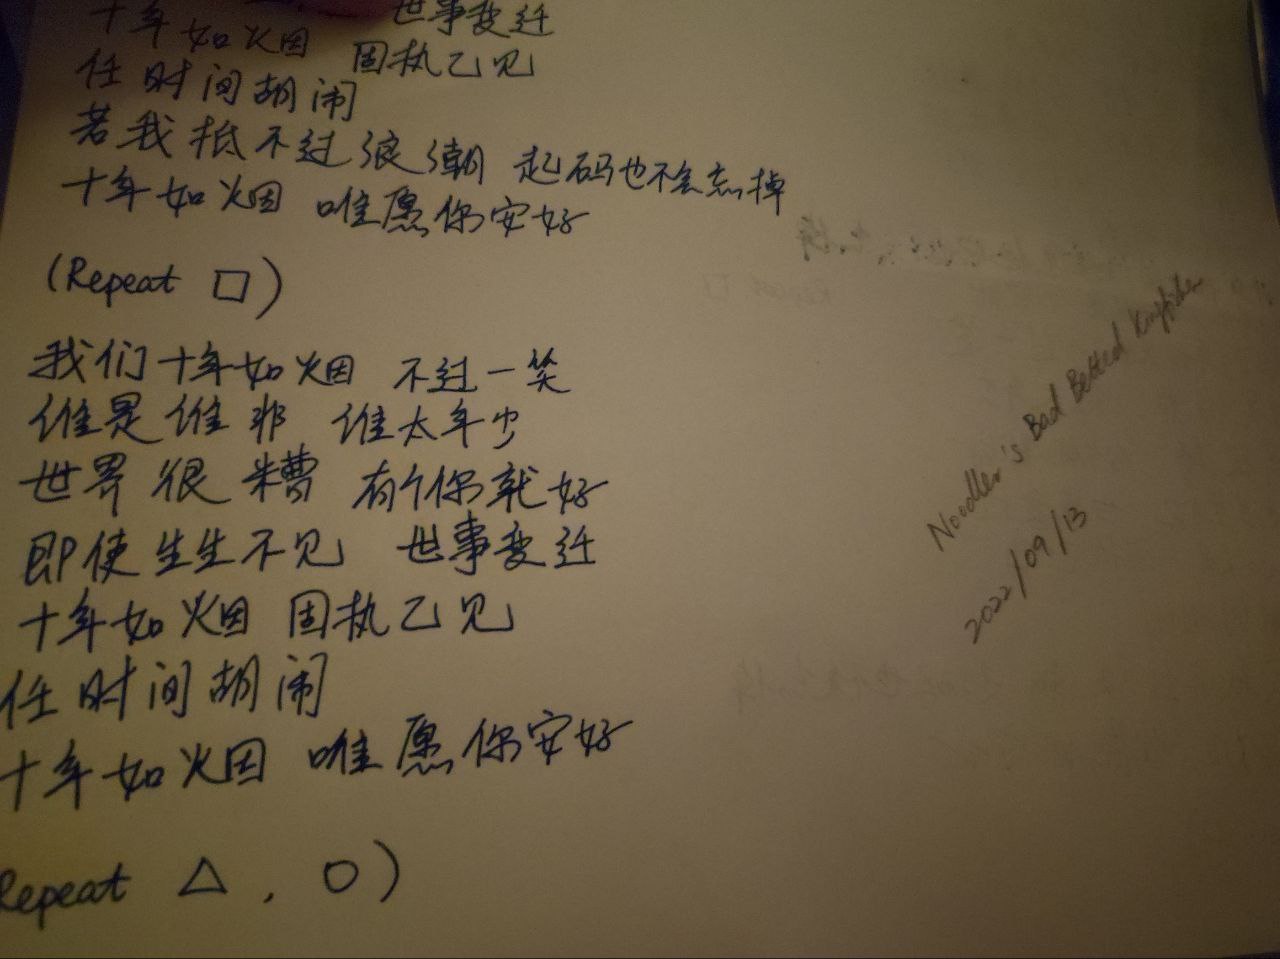 十年如烟 世事变迁
任时间胡闹 固执己见
若我抵不过浪潮 起码也不会忘掉
十年如烟 唯愿你安好
(Repeat □)
我们十年如烟 不过一笑
谁是谁非 谁太年少
世界很糟 有个你就好
即使生生不见 世事变迁
十年如烟 固执己见
任时间胡闹
十年如烟 唯愿你安好
Repeat △, ○)
Noodler's Bad Belted Kingfisher
2022/09/13